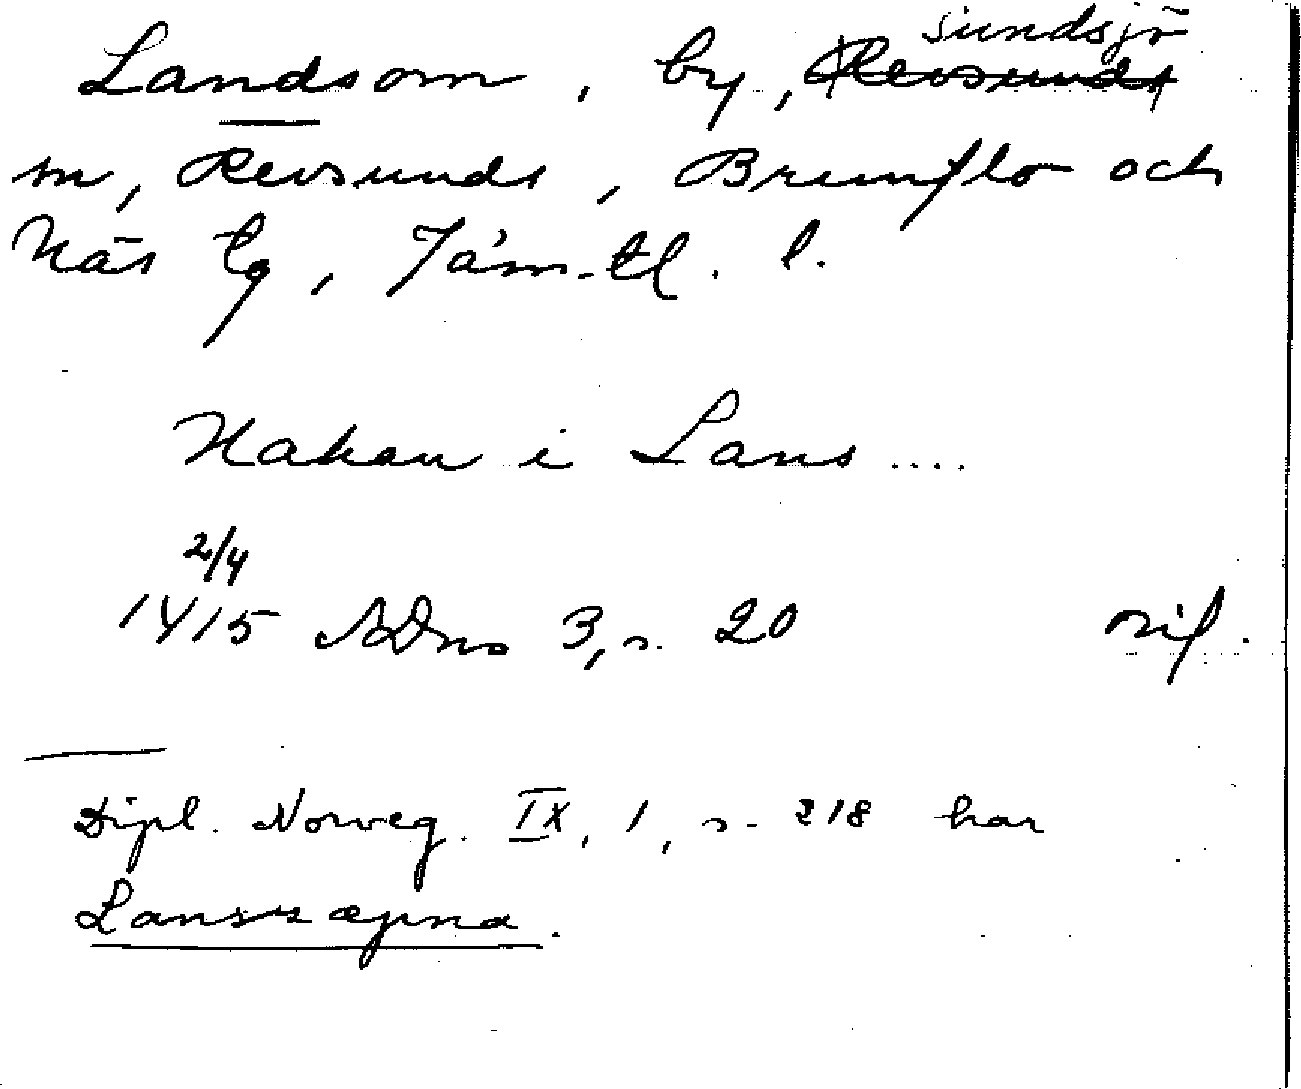 Landsom, by, Revsunds Sundsjö
sn, Revsunds, Brunflo och
Näs tg, Jämtl. l.
Hakan i Lans ....
2/4
1415 SDns 3, s. 20 orig.
Dipl. Norveg. IX, 1, s. 218 har